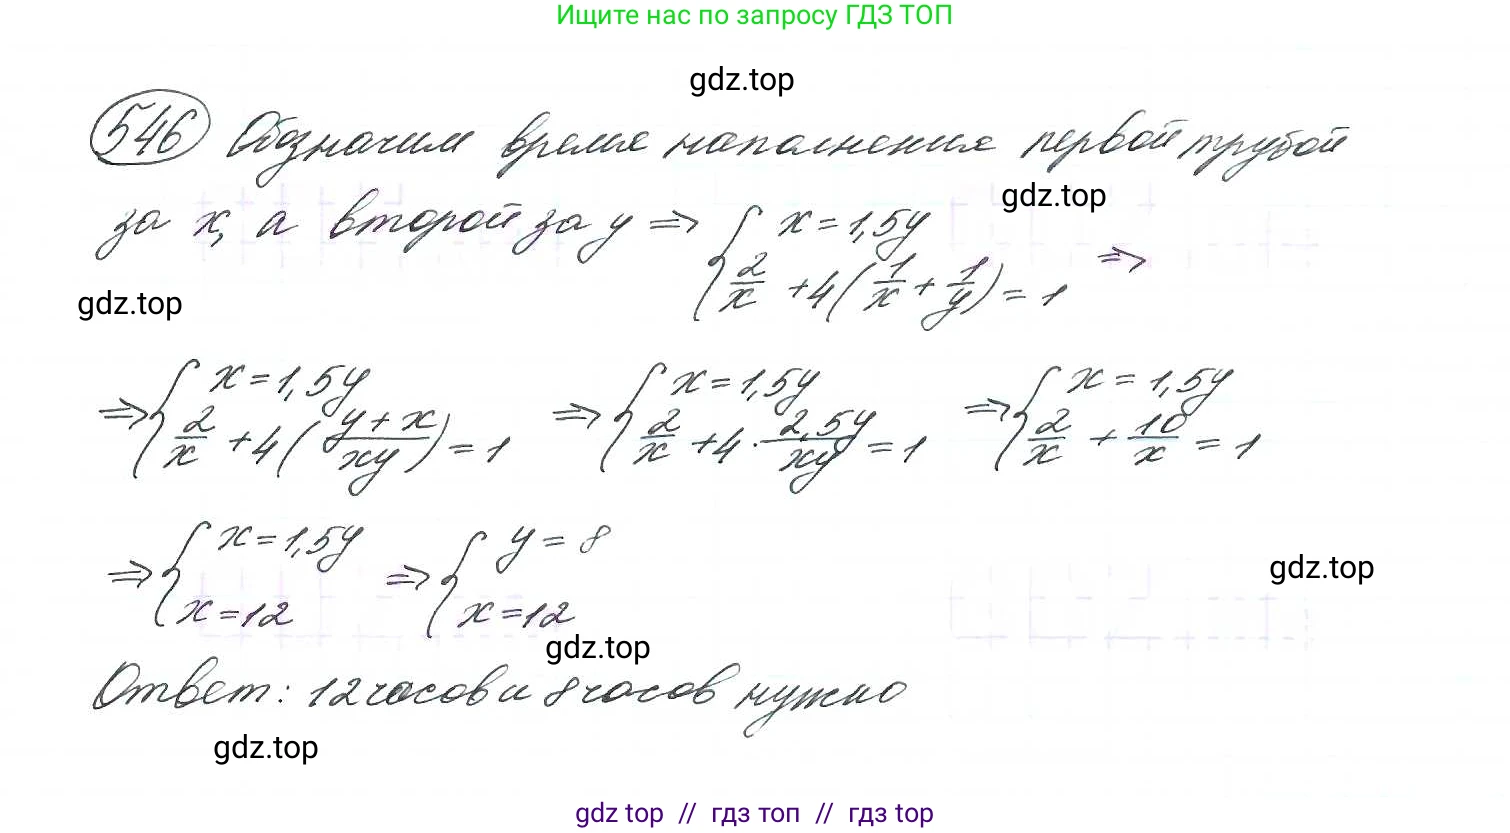 Ищите нас по запросу ГДЗ ТОП
gdz.top
546 Обозначим время наполнения первой трубой
gdz.top
за x, а второй за y ⇒ { x = 1,5y
2/x + 4(1/x + 1/y) = 1 ⇒
gdz.top
⇒ { x = 1,5y ⇒ { x = 1,5y ⇒ { x = 1,5y
2/x + 4((y + x)/xy) = 1 2/x + 4 · 2,5y/xy = 1 2/x + 10/x = 1
⇒ { x = 1,5y ⇒ { y = 8
gdz.top
x = 12 x = 12
gdz.top
Ответ: 12 часов и 8 часов нужно
gdz.top
gdz top // гдз топ // гдз top